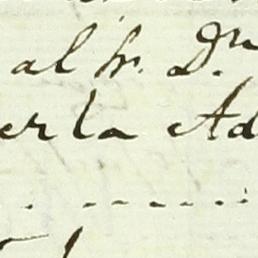 al Sr. Dn
er la Ad